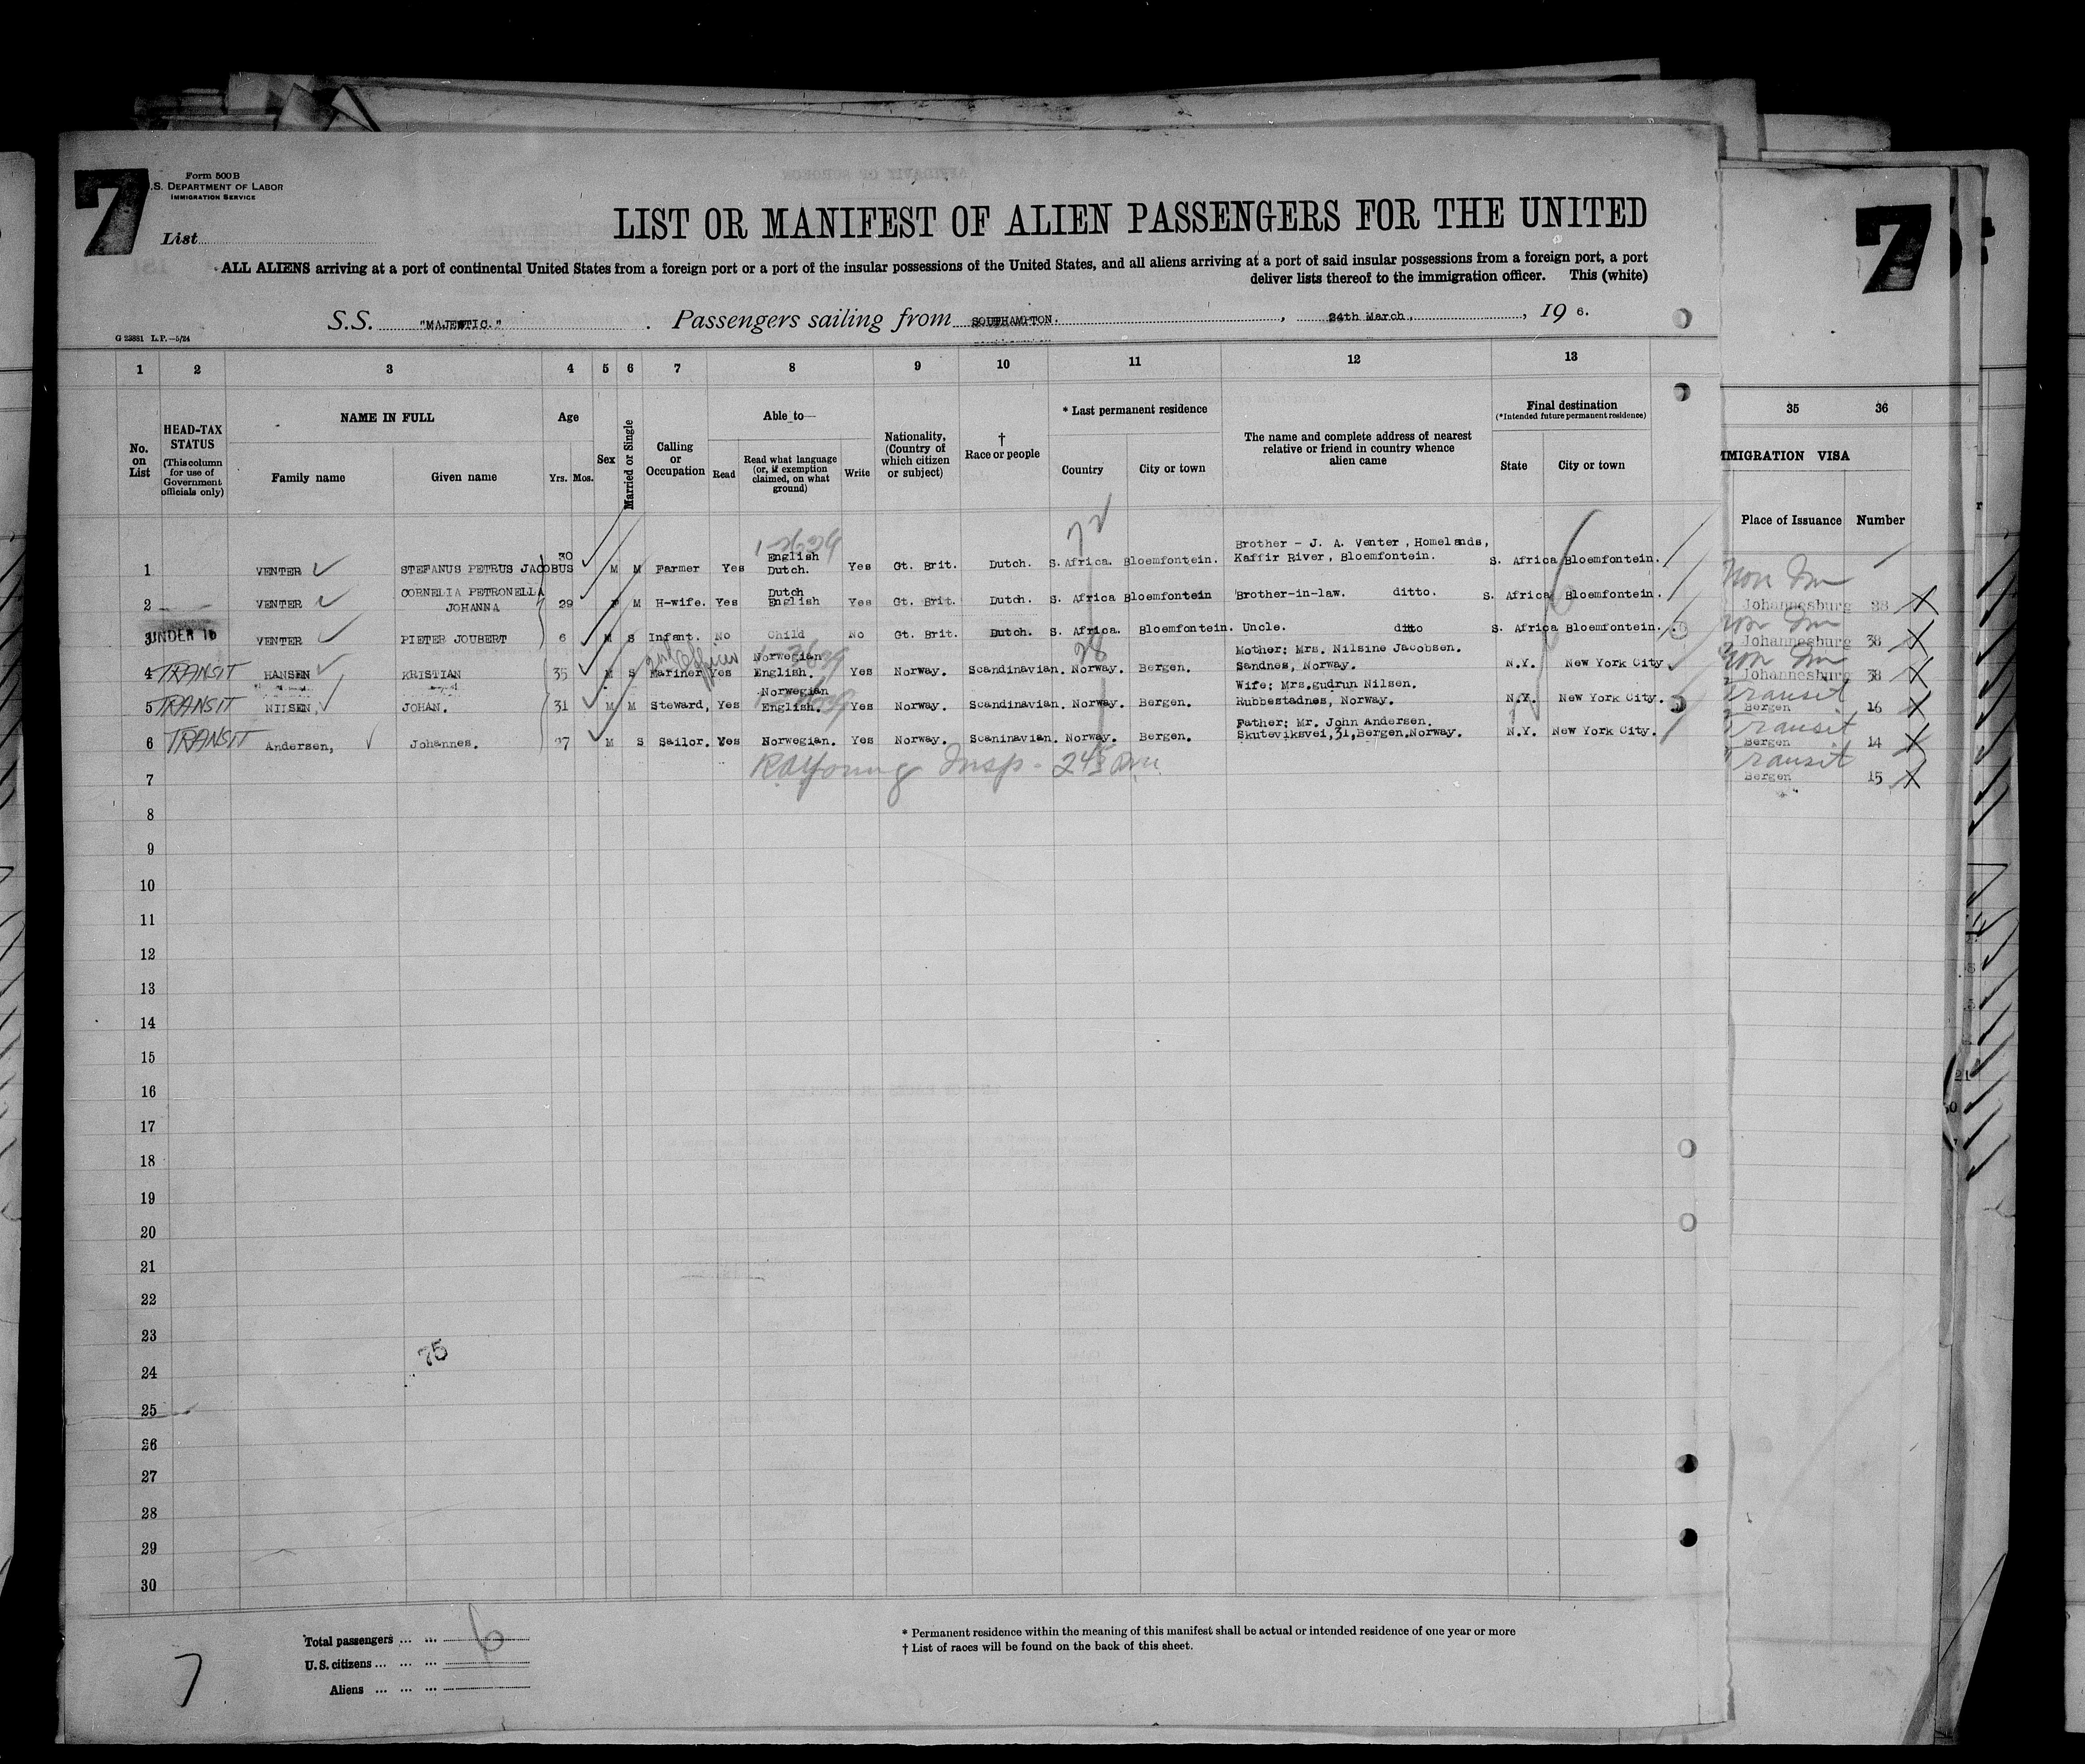 7
Form 500B
.S. DEPARTMENT OF LABOR
IMMIGRATION SERVICE
List
LIST OR MANIFEST OF ALIEN PASSENGERS FOR THE UNITED
ALL ALIENS arriving at a port of continental United States from a foreign port or a port of the insular possessions of the United States, and all aliens arriving at a port of said insular possessions from a foreign port, a port
deliver lists thereof to the immigration officer. This (white)
S.S. "MAJESTIC." Passengers sailing from SOUTHAMPTON. , 24th March, , 19 6.
G 23881 L.P.—5/24
1 2 3 4 5 6 7 8 9 10 11 12 13
No. on List
HEAD-TAX STATUS
(This column for use of Government officials only)
NAME IN FULL
Family name Given name
Age
Yrs. Mos.
Sex
Married or Single
Calling or Occupation
Able to—
Read
Read what language (or, if exemption claimed, on what ground)
Write
Nationality, (Country of which citizen or subject)
† Race or people
* Last permanent residence
Country City or town
The name and complete address of nearest relative or friend in country whence alien came
Final destination
(*Intended future permanent residence)
State City or town
1 VENTER STEFANUS PETRUS JACOBUS 30 M M Farmer Yes English Dutch. Yes Gt. Brit. Dutch. S. Africa. Bloemfontein. Brother - J. A. Venter, Homelands, Kaffir River, Bloemfontein. S. Africa Bloemfontein.
2 VENTER CORNELIA PETRONELLA JOHANNA 29 F M H-wife. Yes Dutch English Yes Gt. Brit. Dutch. S. Africa Bloemfontein Brother-in-law. ditto. S. Africa Bloemfontein.
3 UNDER 16 VENTER PIETER JOUBERT 6 M S Infant. No Child No Gt. Brit. Dutch. S. Africa. Bloemfontein. Uncle. ditto S. Africa Bloemfontein.
4 TRANSIT HANSEN KRISTIAN 35 M S 2nd Officer Mariner Yes Norwegian English. Yes Norway. Scandinavian. Norway. Bergen. Mother: Mrs. Nilsine Jacobsen. Sandnes, Norway. N.Y. New York City.
5 TRANSIT NILSEN, JOHAN. 31 M M Steward, Yes Norwegian English. Yes Norway. Scandinavian. Norway. Bergen. Wife: Mrs.gudrun Nilsen. Rubbestadnes, Norway. N.Y. New York City.
6 TRANSIT Andersen, Johannes. 27 M S Sailor. Yes Norwegian. Yes Norway. Scaninavian. Norway. Bergen. Father: Mr. John Andersen. Skuteviksvei,31,Bergen,Norway. N.Y. New York City.
7
8
9
10
11
12
13
14
15
16
17
18
19
20
21
22
23
75
24
25
26
27
28
29
30
Total passengers ... ... 6
U.S. citizens ... ... ...
Aliens ... ... ...
7
* Permanent residence within the meaning of this manifest shall be actual or intended residence of one year or more
† List of races will be found on the back of this sheet.
7
35 36
MMIGRATION VISA
Place of Issuance Number
Non Im
Johannesburg 38
Non Im
Johannesburg 38
Non Im
Johannesburg 38
Transit
Bergen 16
Transit
Bergen 14
Transit
Bergen 15